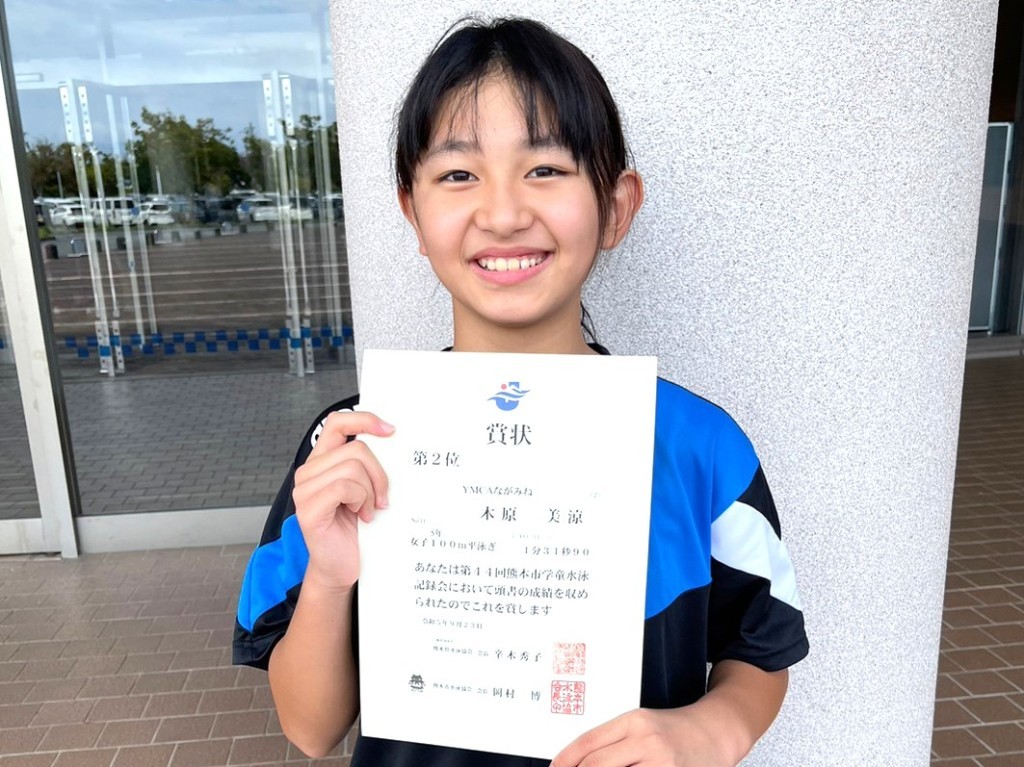 賞状
第２位
YMCAながみね
木原 美涼
5年
女子１００ｍ平泳ぎ １分３１秒９０
あなたは第４４回熊本市学童水泳
記録会において頭書の成績を収め
られたのでこれを賞します
令和５年９月２３日
熊本県水泳協会 会長 幸木秀子
熊本市水泳協会 会長 岡村 博